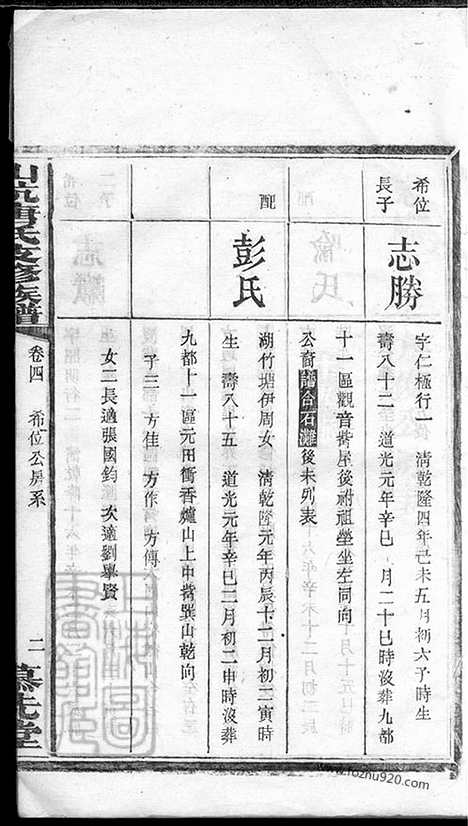 希位
長子
志勝
字仁極行一 清乾隆四年己未五月初六子時生
壽八十二 道光元年辛巳 月二十巳時沒葬九都
十一區觀音衖屋後祔祖塋坐左同向
公裔譜合石灘後未列表
配
彭氏
湖竹塘伊周女 清乾隆元年丙辰十二月初二寅時
生 壽八十五 道光元年辛巳二月初二申時沒葬
九都十一區元田衝香爐山上中嘴巽山乾向
子三 方佳 方作 方傳
女二長適張國鈞 次適劉舉賢
卷四 希位公房系
二
慕先堂
www.fozhu920.com